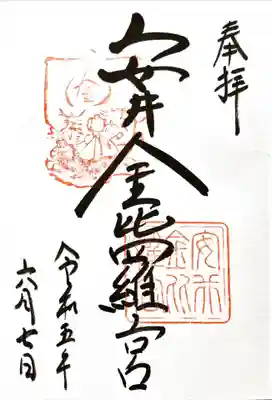 奉拝
安井金比羅宮
安井
金比
令和五年
六月七日